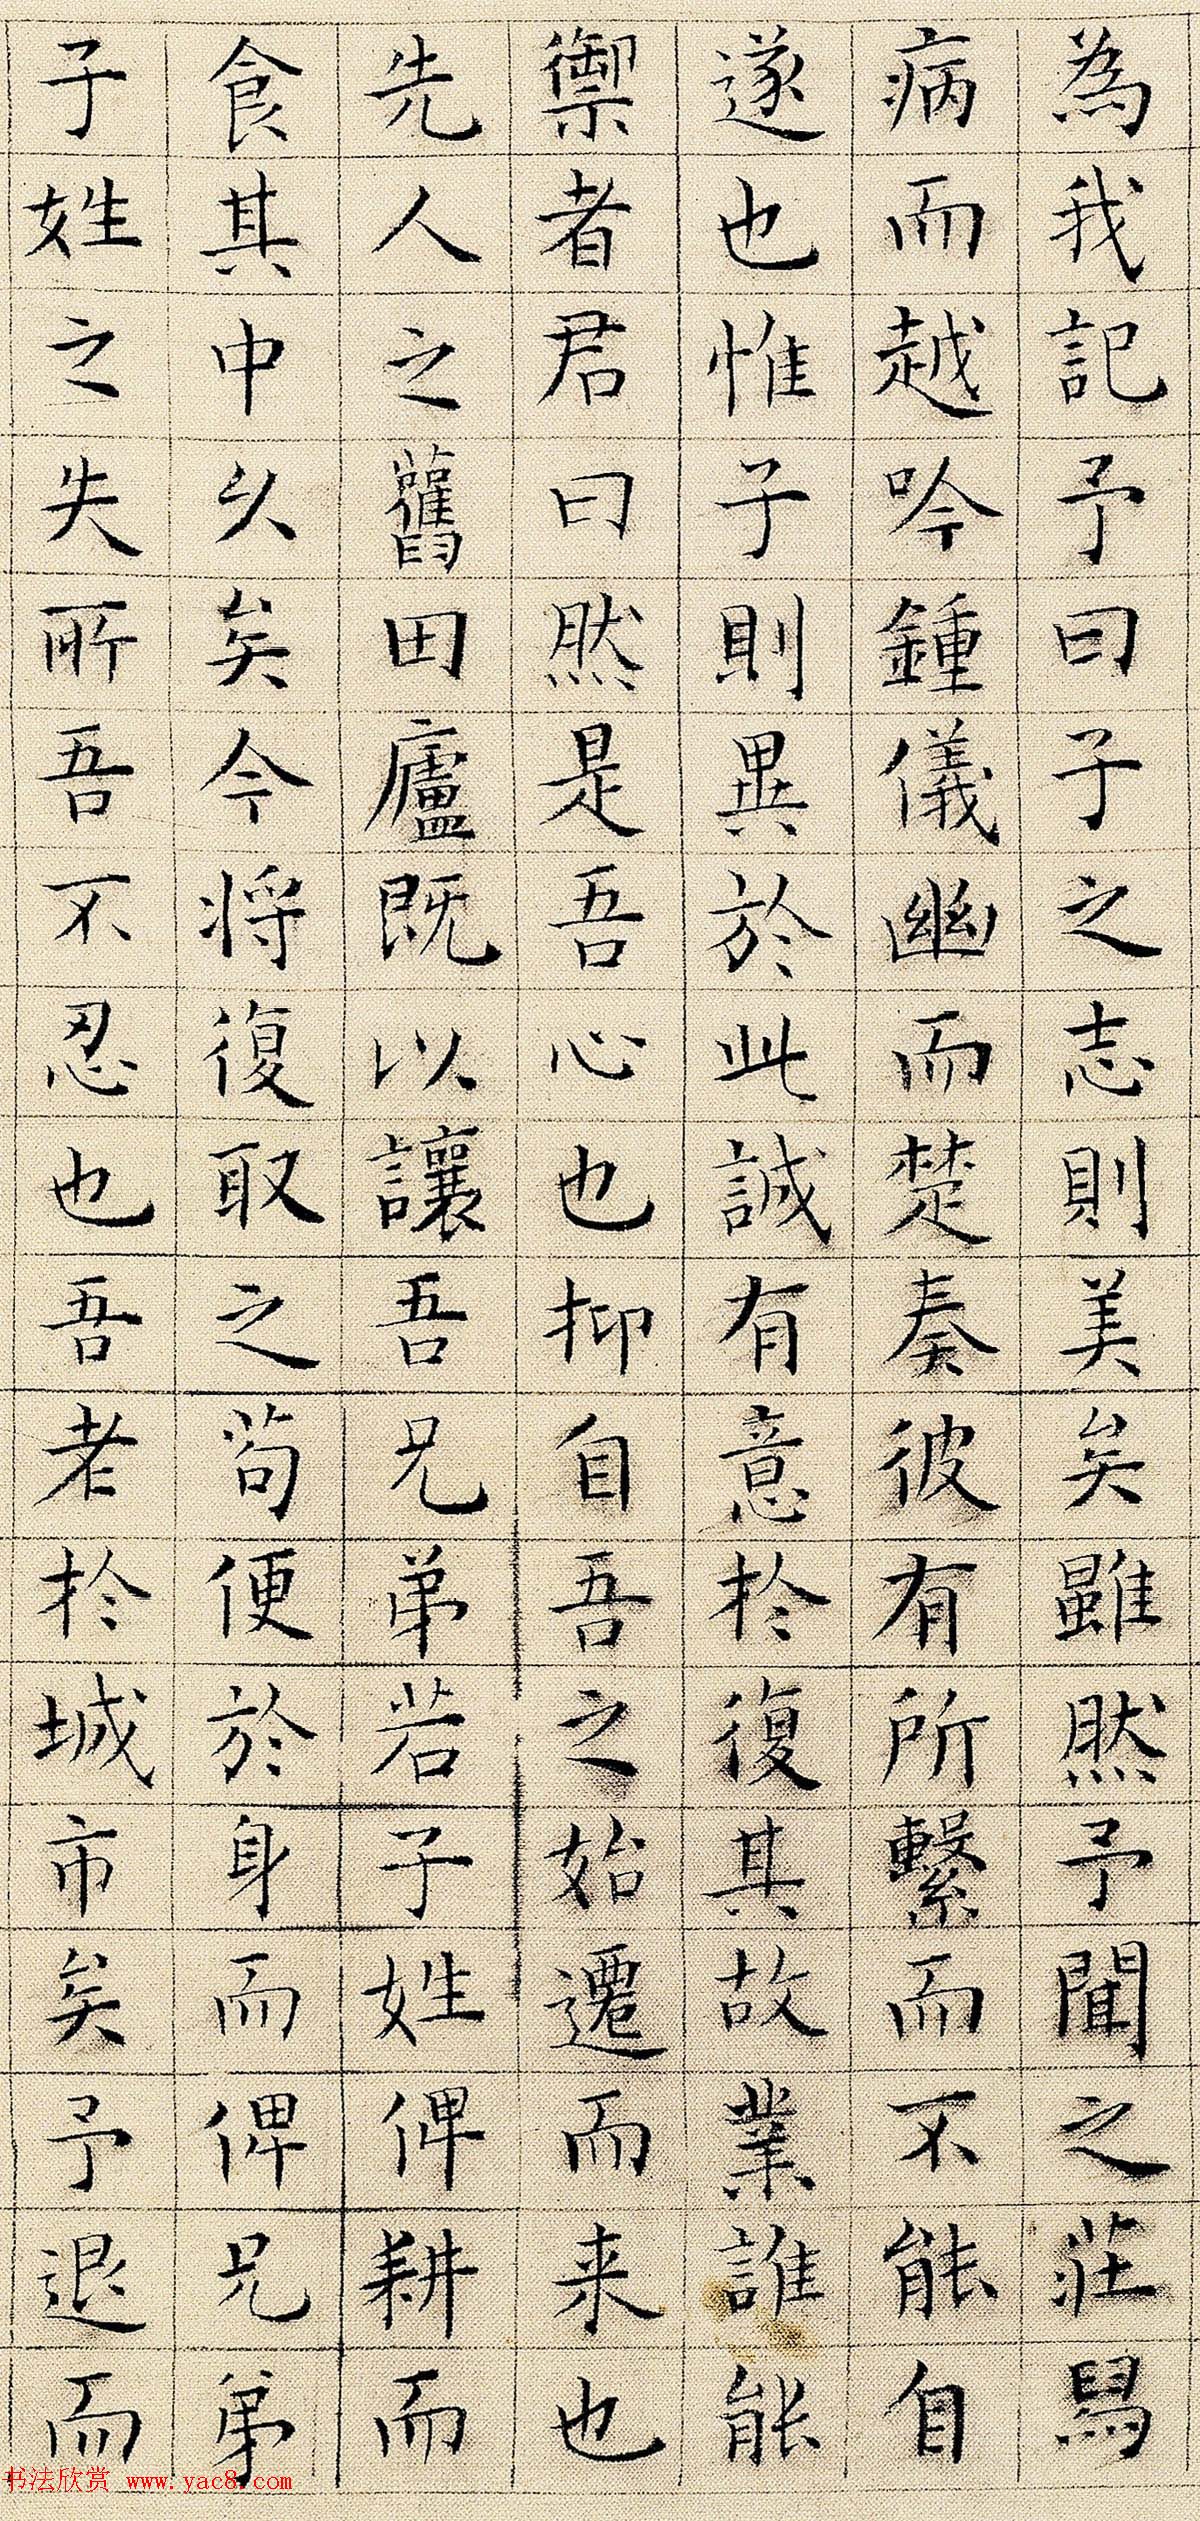 為我記予曰子之志則美矣雖然予聞之莊舄
病而越吟鍾儀幽而楚奏彼有所繫而不能自
遂也惟子則異於此誠有意於復其故業誰能
禦者君曰然是吾心也抑自吾之始遷而来也
先人之舊田廬既以讓吾兄弟若子姓俾耕而
食其中久矣今将復取之苟便於身而俾兄弟
子姓之失所吾不忍也吾老於城市矣予退而
书法欣赏 www.yac8.com